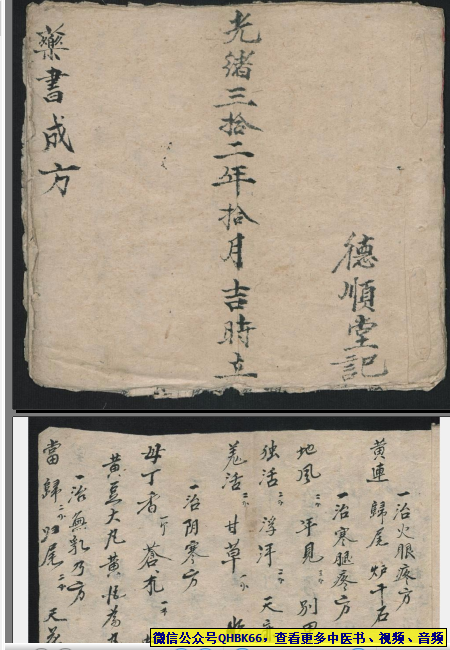 德順堂記
光緒三拾二年拾月吉時立
藥書成方
一治火眼疼方
黄連 歸尾 炉干石
一治寒腿疼方
地風 千見 别甲
独活 浮汗 天
羗活 甘草
一治阴寒方
母丁香 蒼朮
黄豆大 黄
一治無乳乃方
當歸 归尾 天花
微信公众号QHBK66，查看更多中医书、视频、音频